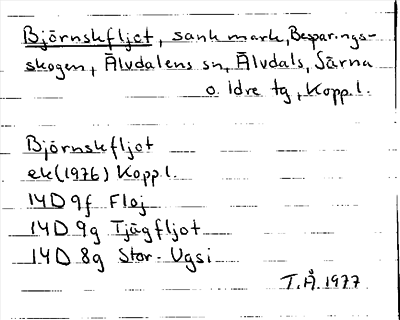 Björnskfljot, sank mark, Besparings-
skogen, Älvdalens sn, Älvdals, Särna
o. Idre tg, Kopp.l.
Björnskfljot
ek(1976) Kopp.l.
14D 9f Floj
14D 9g Tjägfljot
14D 8g Stor-Ugsi
T.Å. 1977